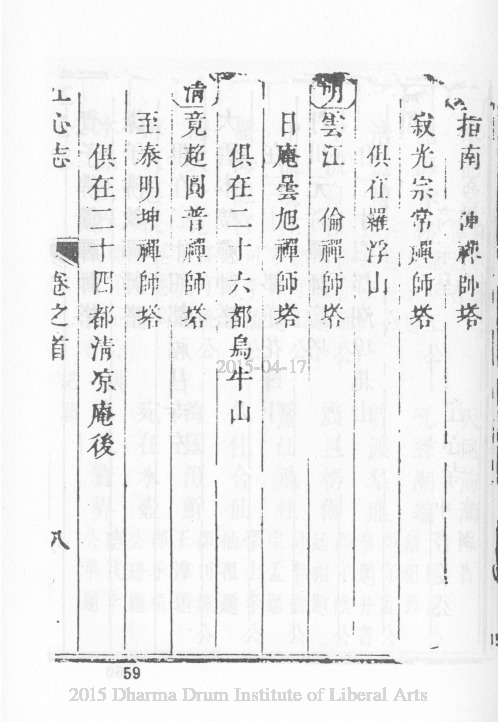 指南　禪師塔
寂光宗常禪師塔
俱在羅浮山
明
雲江　倫禪師塔
日庵曇旭禪師塔
俱在二十六都烏牛山
清
竟超闓普禪師塔
至泰明坤禪師塔
俱在二十四都清凉庵後
心志　卷之首　八
2015-04-17
59
2015 Dharma Drum Institute of Liberal Arts